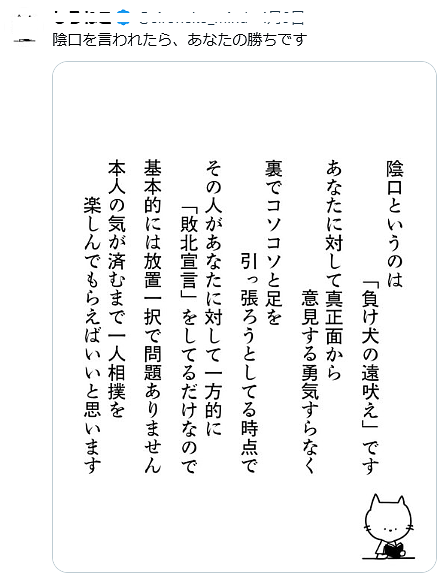 陰口を言われたら、あなたの勝ちです
陰口というのは
「負け犬の遠吠え」です
あなたに対して真正面から
意見する勇気すらなく
裏でコソコソと足を
引っ張ろうとしてる時点で
その人があなたに対して一方的に
「敗北宣言」をしてるだけなので
基本的には放置一択で問題ありません
本人の気が済むまで一人相撲を
楽しんでもらえばいいと思います